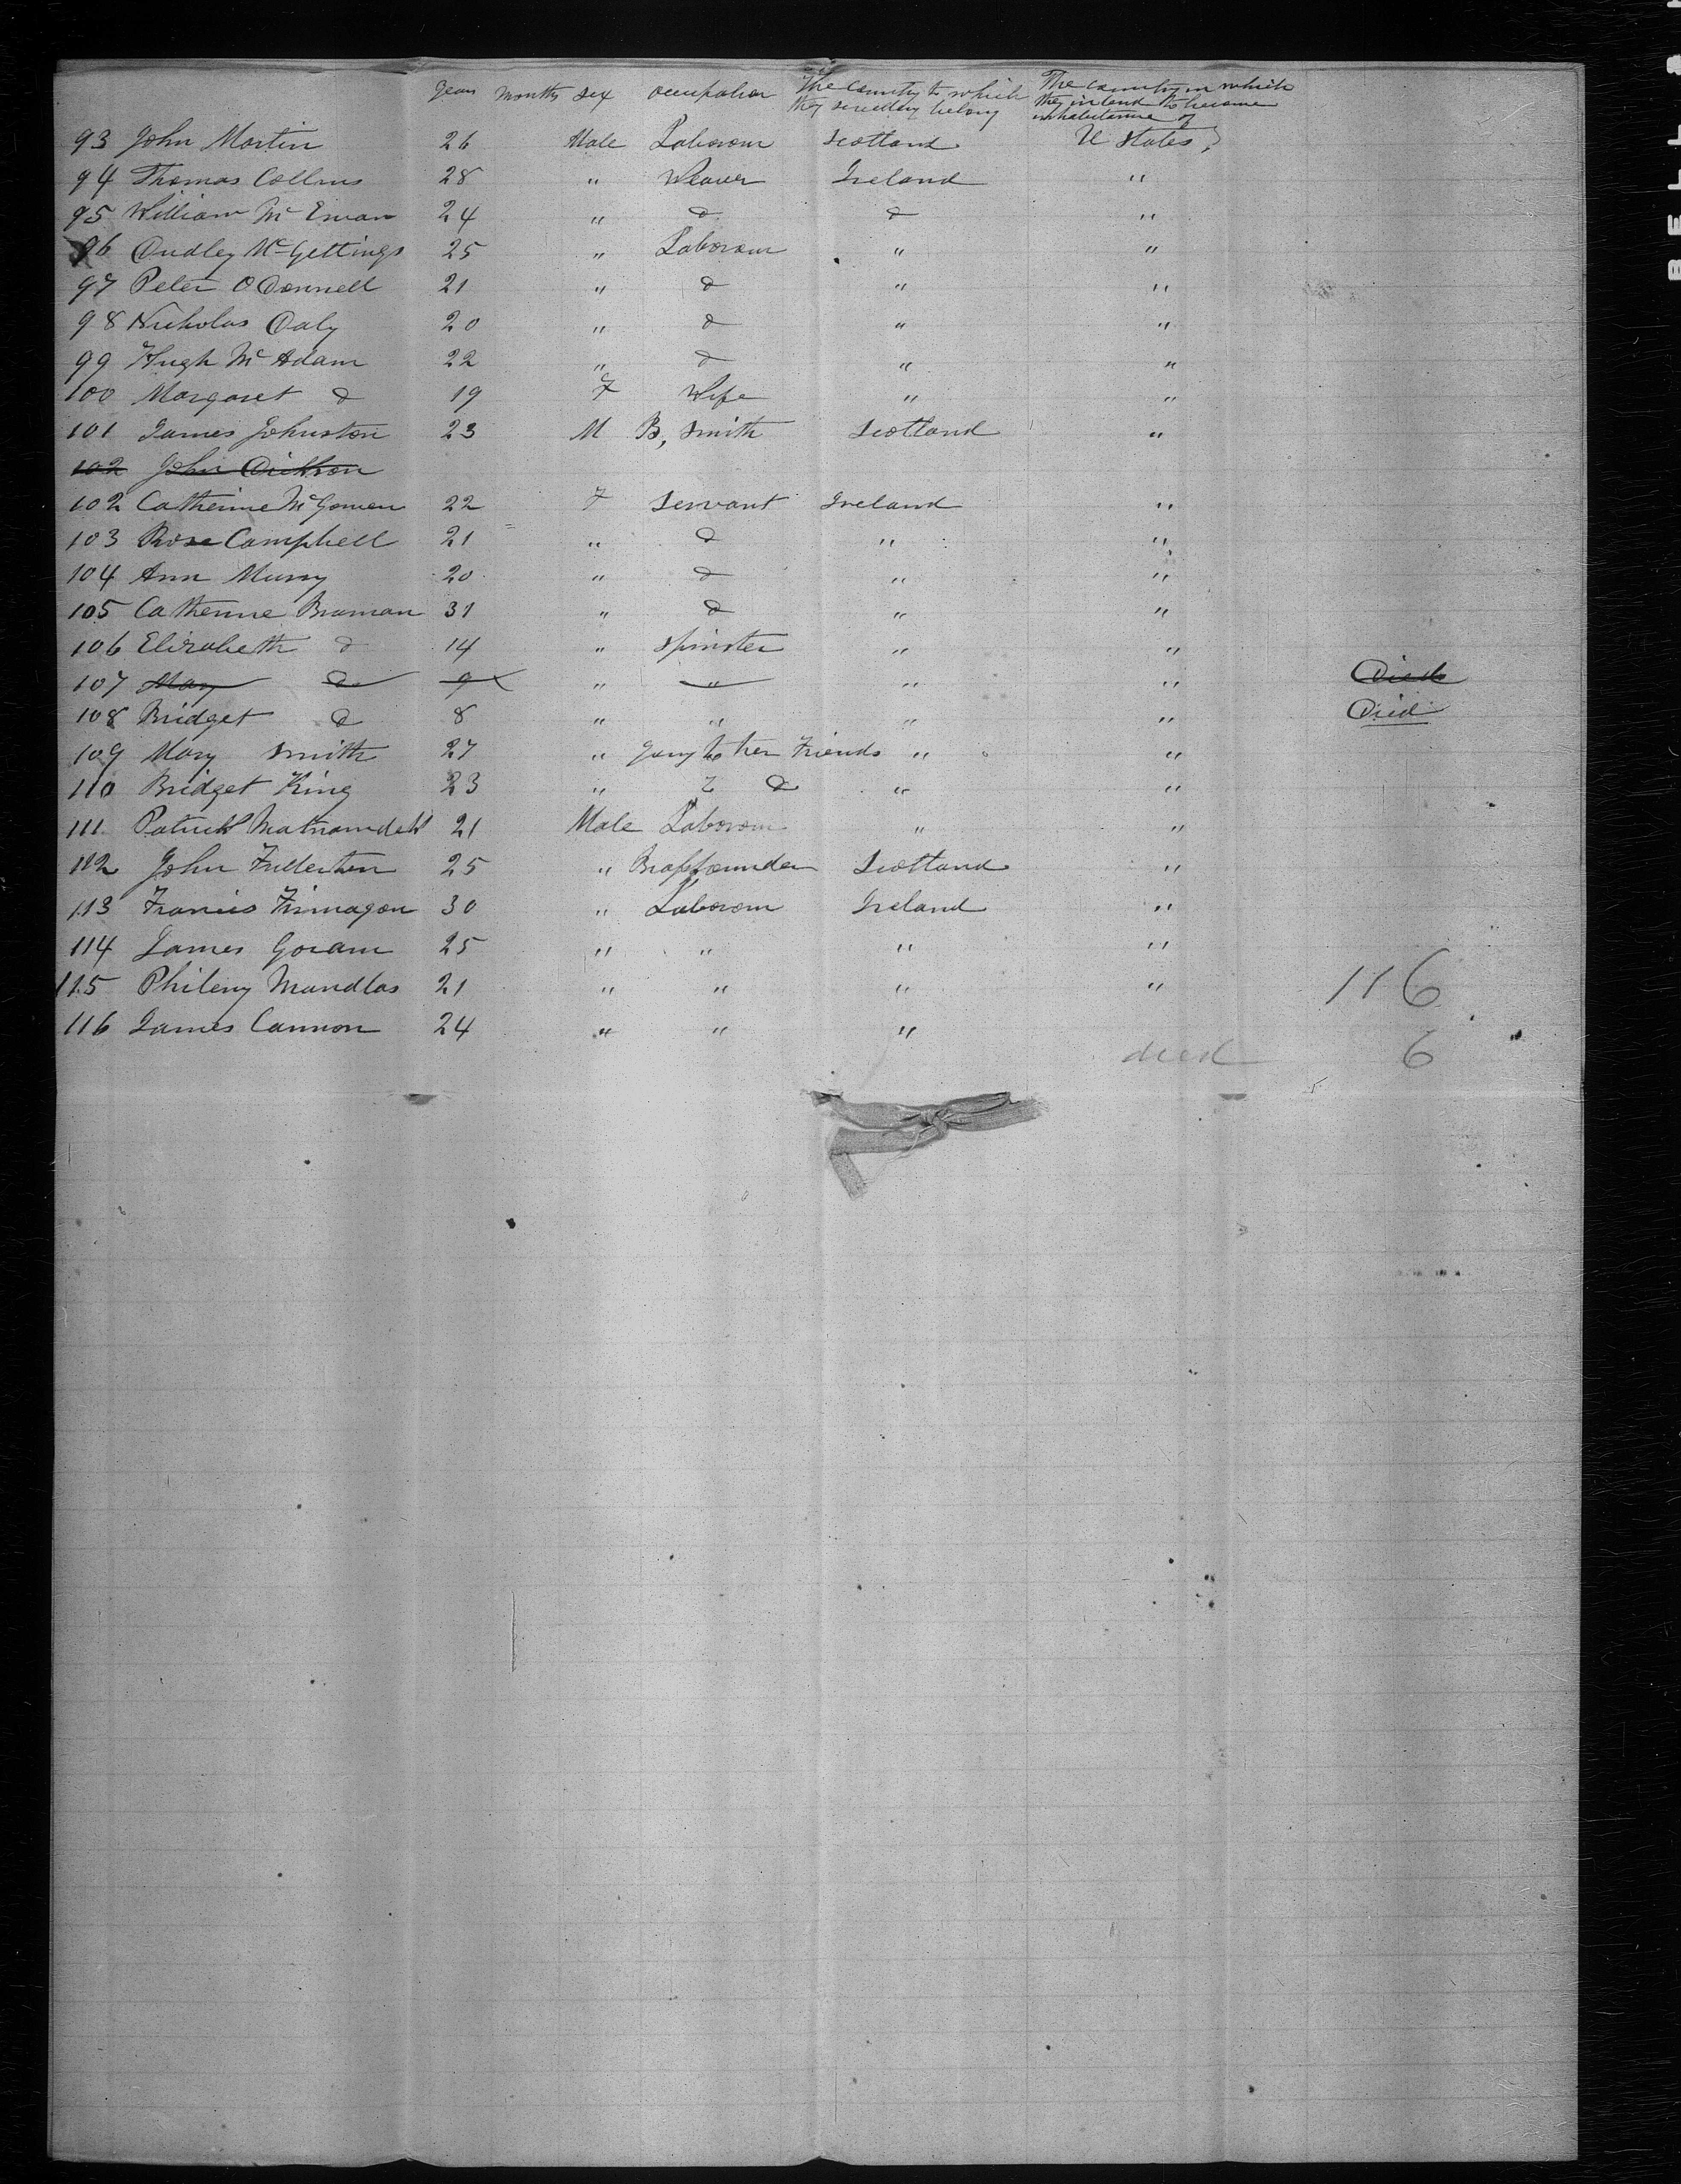 years months sex occupation The country to which they severlley belong The country in which they intend to become inhabitance of
93 John Martin 26 Male Laborour Scotland U States,
94 Thomas Collins 28 " Weaver Ireland "
95 William Mc Ewan 24 " do do "
96 Dudley McGettings 25 " Labourour " "
97 Peter O Donnell 21 " do " "
98 Nicholas Daly 20 " do " "
99 Hugh Mc Adam 22 " do " "
100 Margaret do 19 F Wife " "
101 James Johnston 23 M B, Smith Scotland "
102 John Dickson
102 Catherine McGowen 22 F Servant Ireland "
103 Rose Campbell 21 " do " "
104 Ann Murry 20 " do " "
105 Catherine Branan 31 " do " "
106 Elizabeth do 14 " Spinster " "
107 May do 9 " " " " Died
108 Bridget do 8 " " " " Died
109 Mary Smith 27 " going to her Friends " "
110 Bridget King 23 " do " "
111 Patrick 21 Male Laborour " "
112 John Fullerton 25 " Brassfounder Scotland "
113 Francis Finnagon 30 " Laborour Ireland "
114 James Goram 25 " " " "
115 Mandlas 21 " " " " 116
116 James Cannon 24 " " "
died 6
BELL &